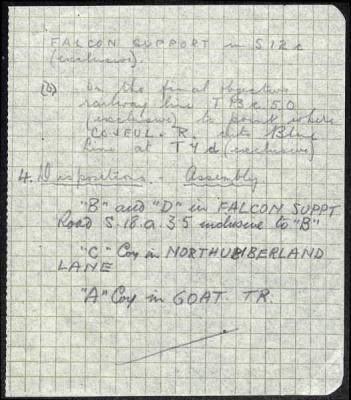 FALCON SUPPORT in S12c
(exclusive).
(b) On the final objective
railway line T 13 c 5.0
(exclusive) to point where
COJEUL. R. cuts Blue
line at T 4 d (exclusive)
4. Dispositions. - Assembly
"B" and "D" in FALCON SUPPT
Road S.18.a.35 inclusive to "B"
"C" Coy in NORTHUMBERLAND
LANE
"A" Coy in GOAT TR.